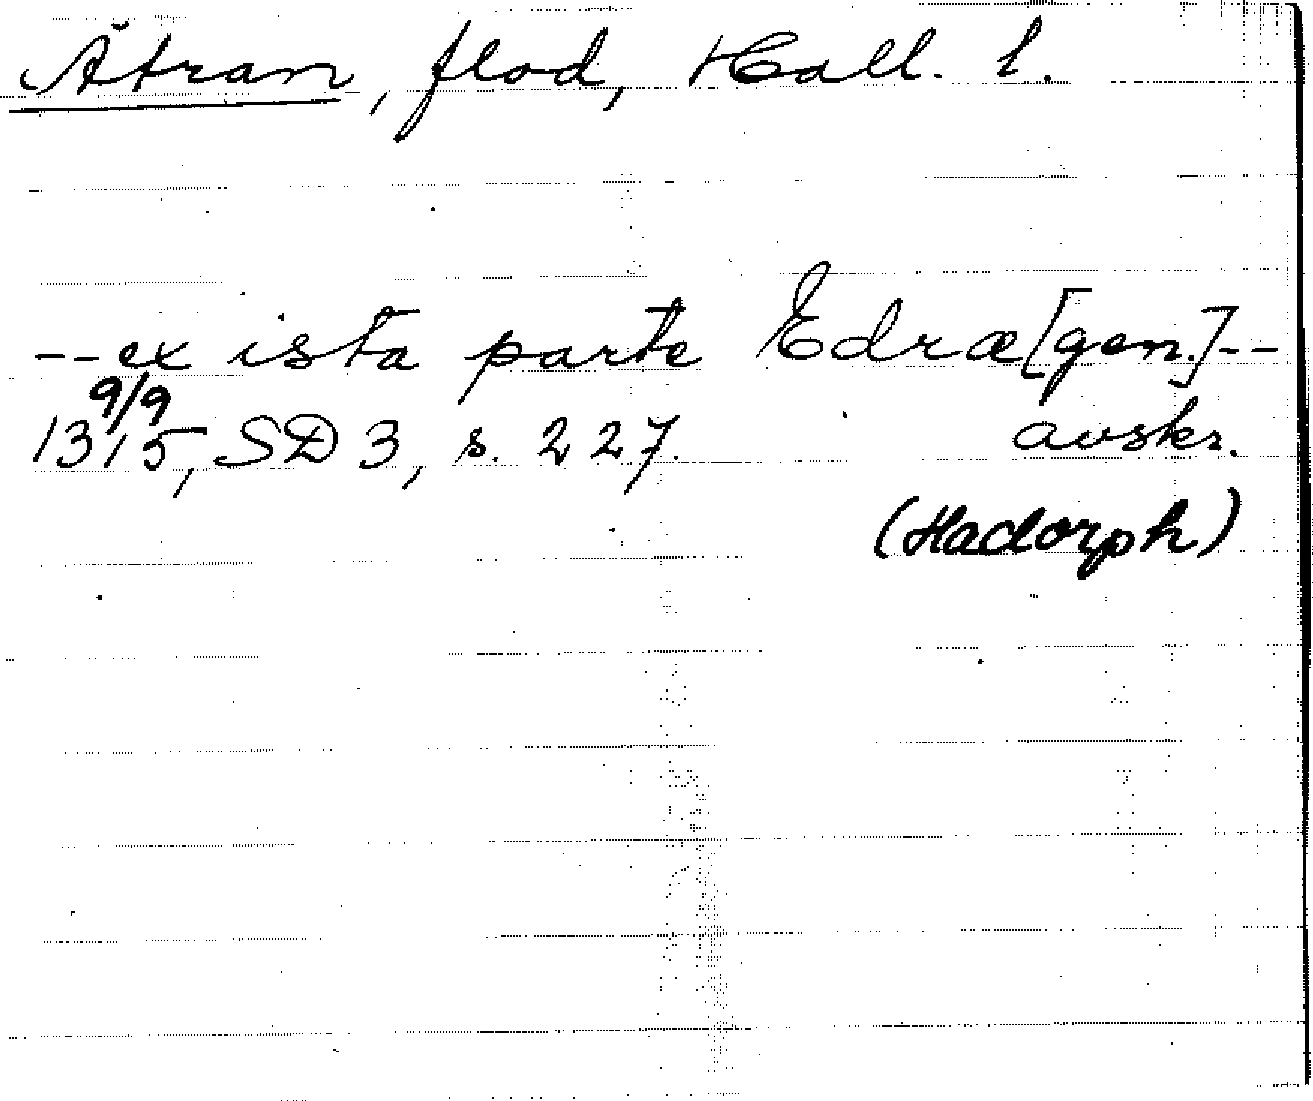 Ätran, flod, Hall. l.
--ex ista parte Edræ[gen.]--
9/9
1315, SD 3, s. 227. avskr.
(Hadorph)